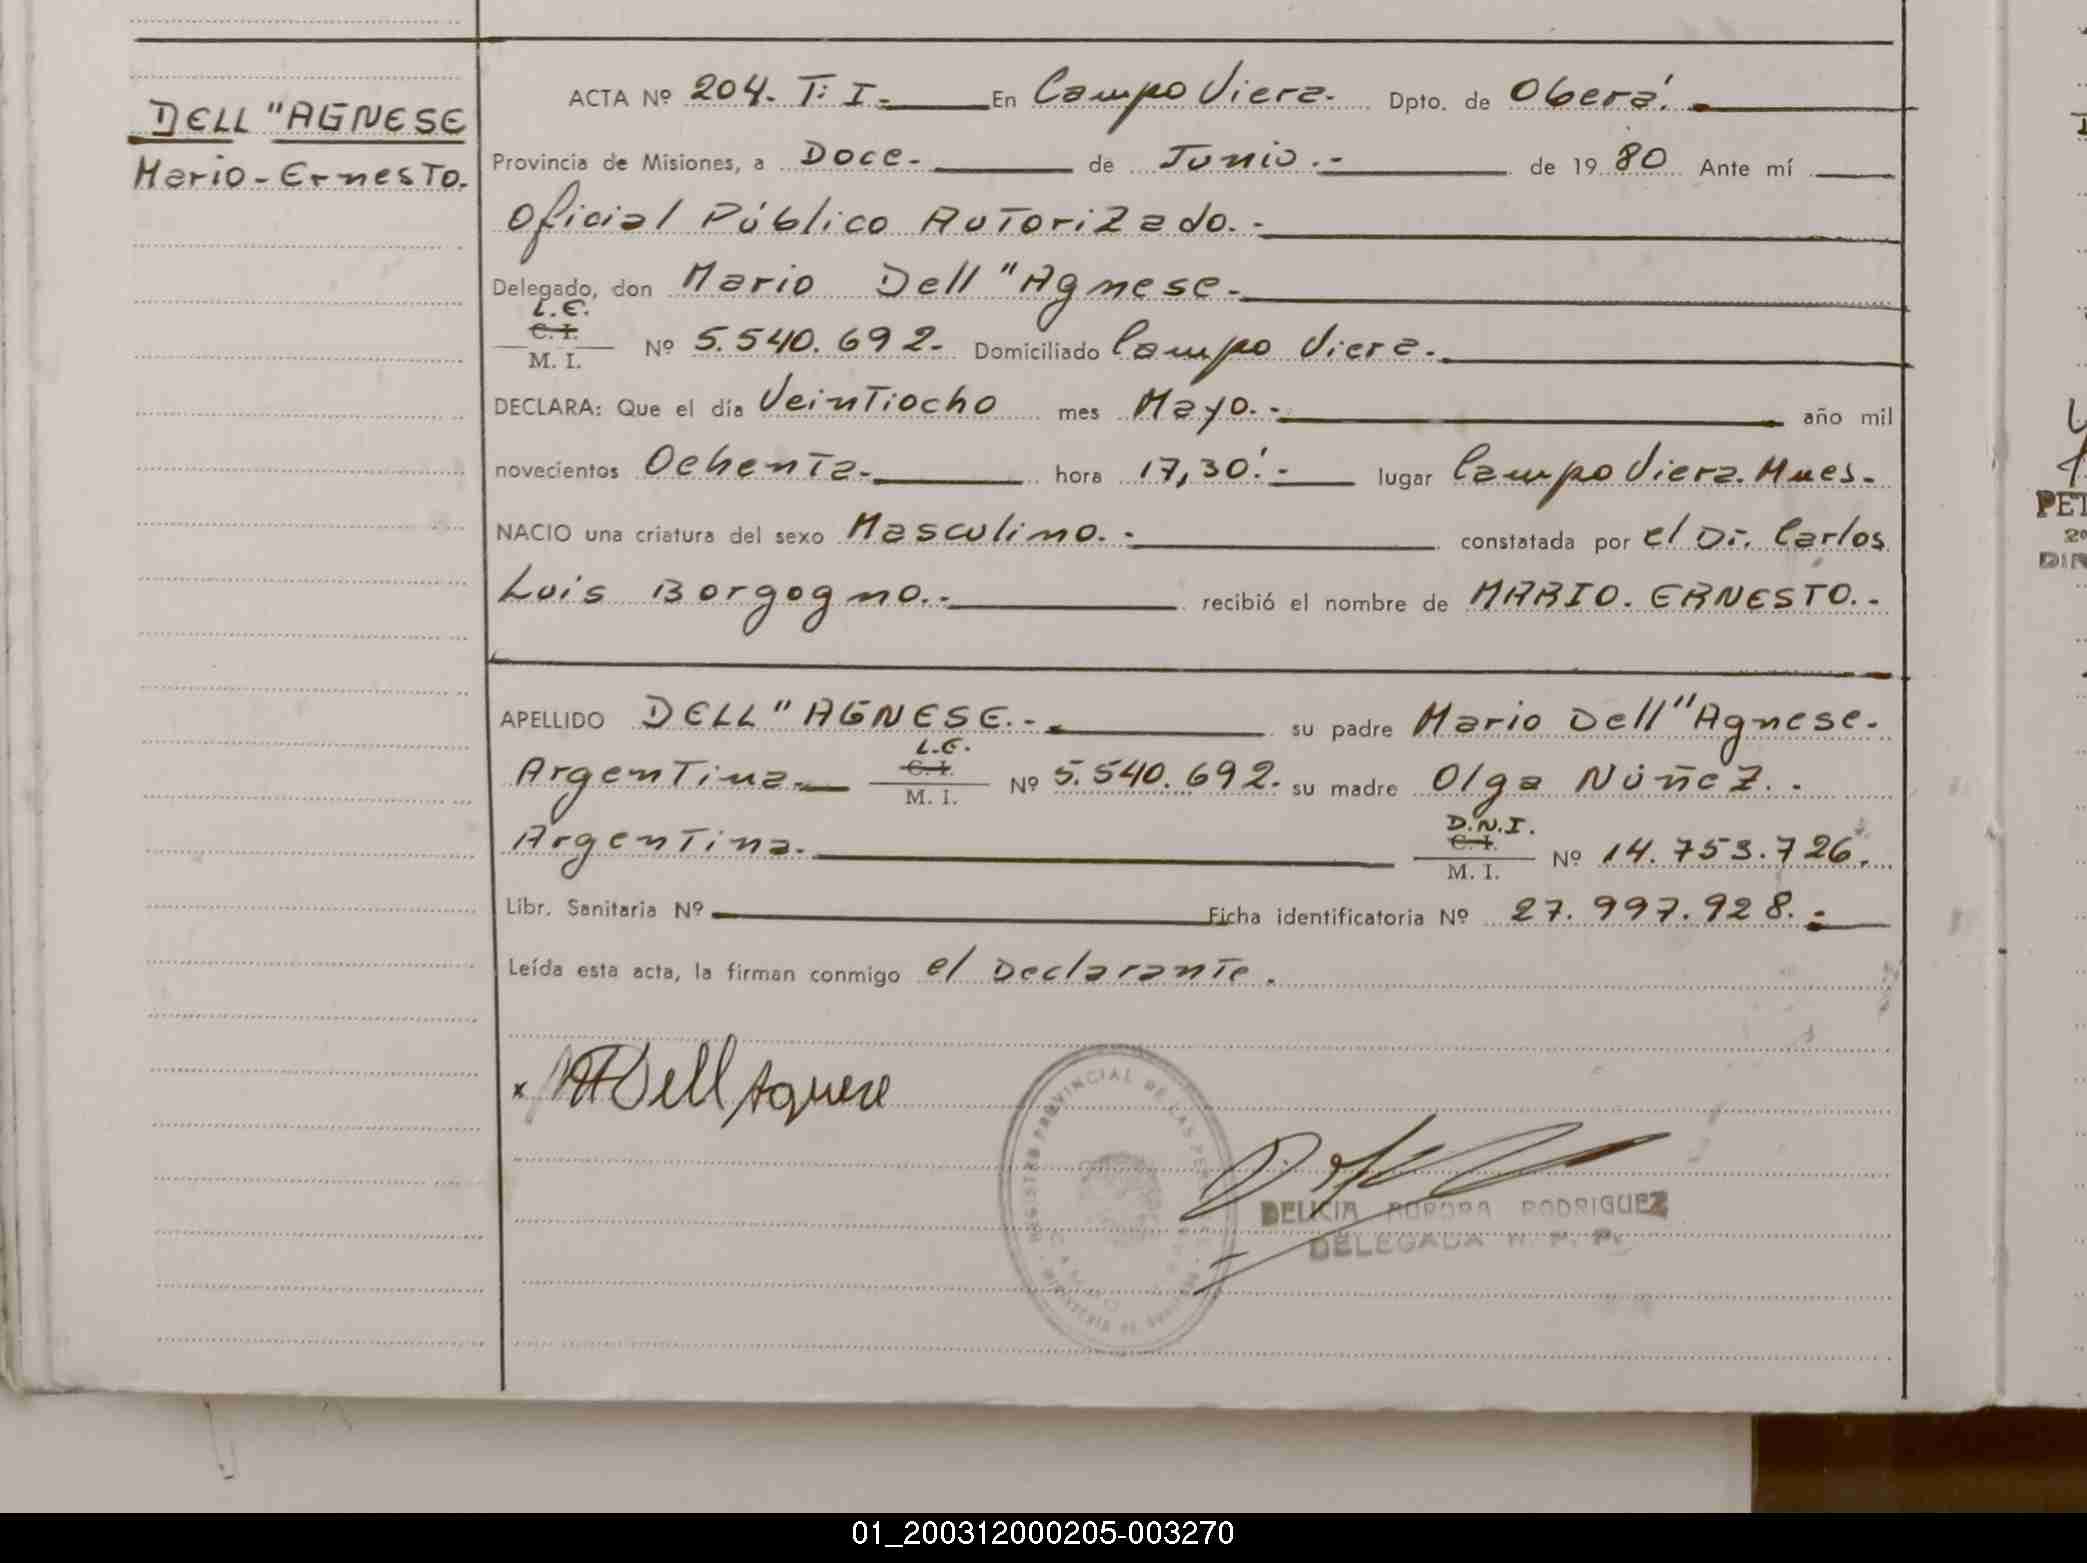 DELL "AGNESE
Mario-Ernesto.
ACTA Nº 204. T: I.- En Campo Viera. Dpto. de Oberá.
Provincia de Misiones, a Doce.- de Junio.- de 1980 Ante mí
Oficial Público Autorizado.-
Delegado, don Mario Dell "Agnese.-
L.E.
C. I.
M. I. Nº 5.540.692.- Domiciliado Campo Viera.-
DECLARA: Que el día Veintiocho mes Mayo.- año mil
novecientos Ochenta.- hora 17,30'.- lugar Campo Viera. Mnes.
NACIO una criatura del sexo Masculino.- constatada por el Dr. Carlos
Luis Borgogno.- recibió el nombre de MARIO. ERNESTO.-
APELLIDO DELL "AGNESE.- su padre Mario Dell "Agnese.
L.E.
C. I.
Argentina M. I. Nº 5.540.692. su madre Olga Núñez.
D.N.I.
C. I.
Argentina. M. I. Nº 14.753.726.
Libr. Sanitaria Nº Ficha identificatoria Nº 27.997.928.-
Leída esta acta, la firman conmigo el Declarante.
x Dell Agnese
REGISTRO PROVINCIAL DE LAS PER
DELICIA AURORA RODRIGUEZ
DELEGADA R. P. P.
PET
DIR
01_200312000205-003270